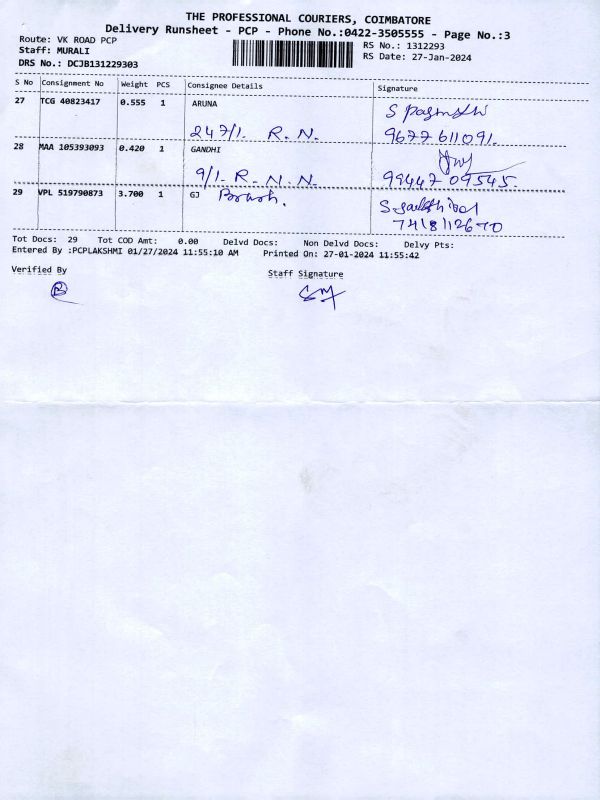 THE PROFESSIONAL COURIERS, COIMBATORE
Delivery Runsheet - PCP - Phone No.:0422-3505555 - Page No.:3
Route: VK ROAD PCP
Staff: MURALI
DRS No.: DCJB131229303
RS No.: 1312293
RS Date: 27-Jan-2024
S No Consignment No Weight PCS Consignee Details Signature
27 TCG 40823417 0.555 1 ARUNA
247/1. R. N. 9677611091.
28 MAA 105393093 0.420 1 GANDHI
9/1. R. N. N. 99447 09545.
29 VPL 519790873 3.700 1 GJ
7418112670
Tot Docs: 29 Tot COD Amt: 0.00 Delvd Docs: Non Delvd Docs: Delvy Pts:
Entered By :PCPLAKSHMI 01/27/2024 11:55:10 AM Printed On: 27-01-2024 11:55:42
Verified By
Staff Signature